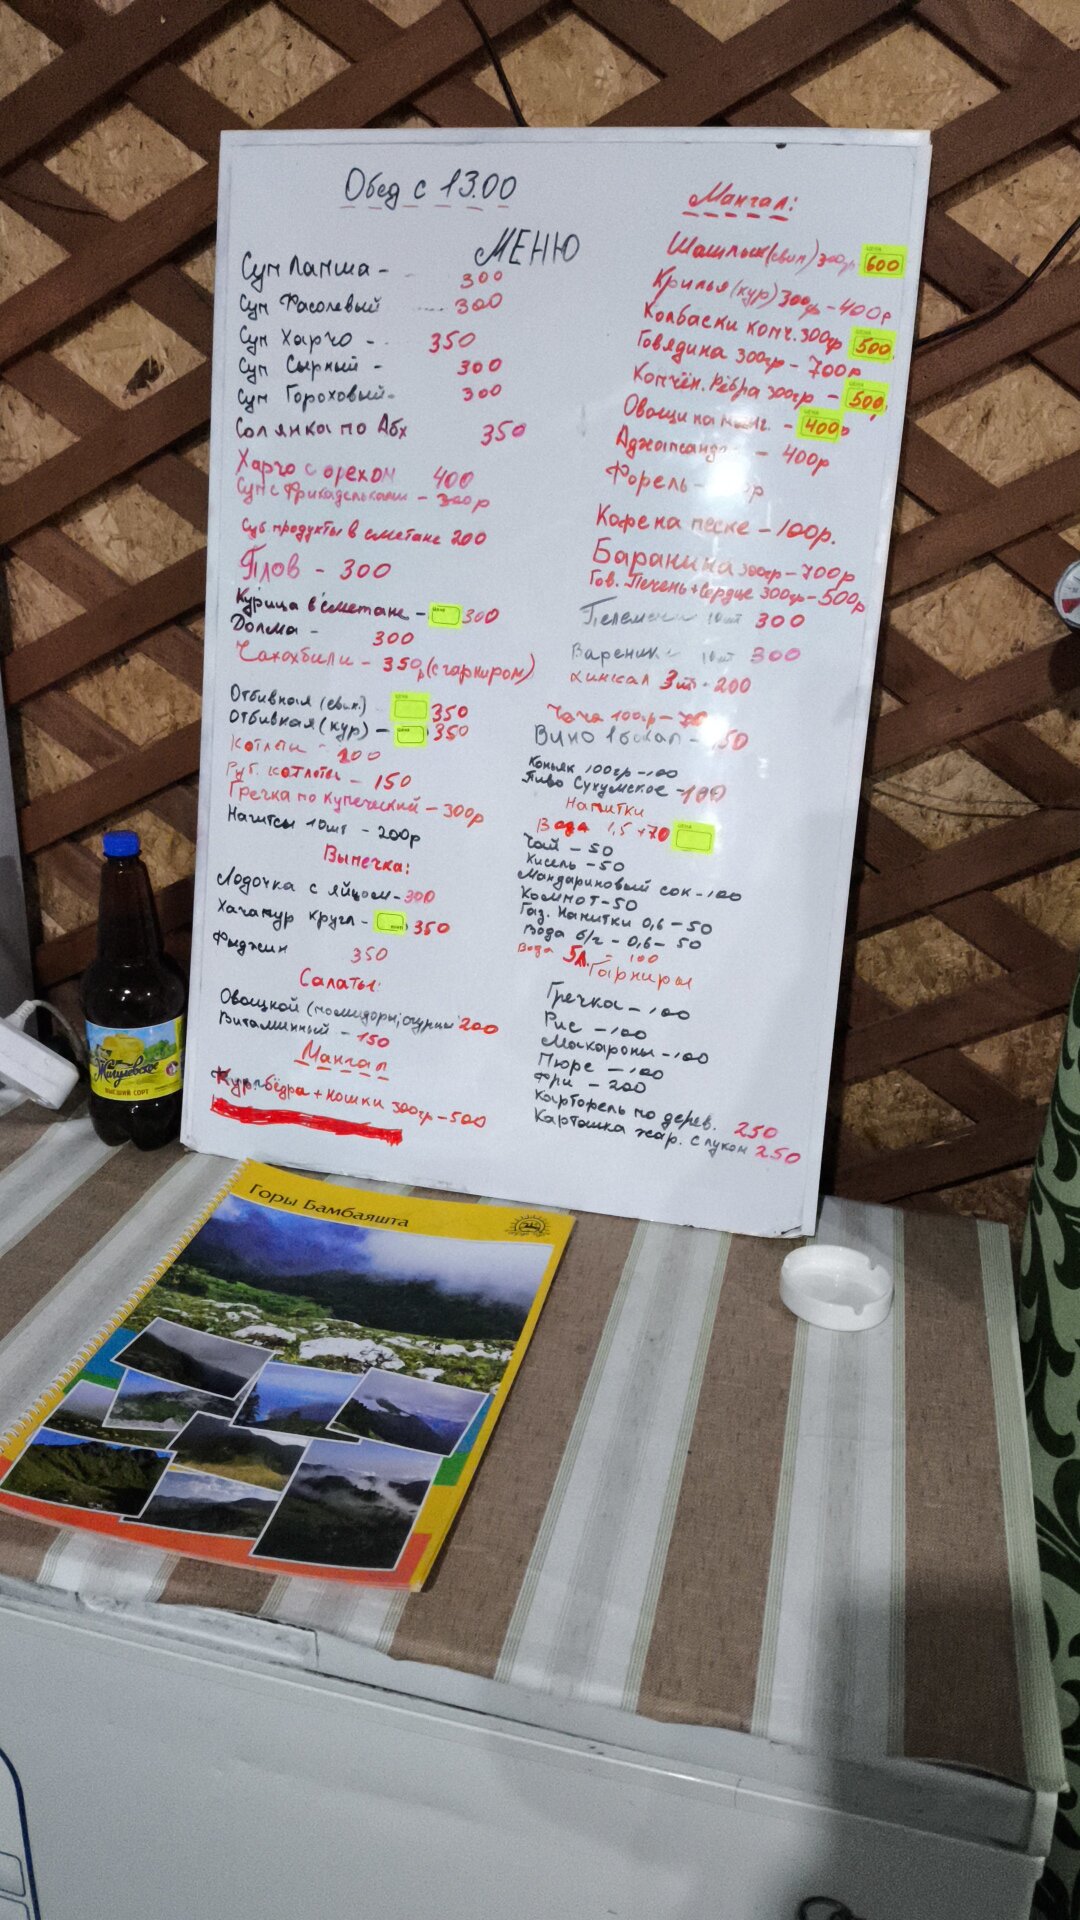 Обед с 13.00
МЕНЮ
Суп Лапша - 300
Суп Фасолевый .... 300
Суп Харчо - 350
Суп Сырный - 300
Суп Гороховый - 300
Солянка по Абх 350
Харчо с орехом 400
Суп с Фрикадельками - 300р
Суб продукты в сметане 200
Плов - 300
Курица в сметане - 300
Долма - 300
Чахохбили - 350р (с гарниром)
Отбивная (свин.) 350
Отбивная (кур) - 350
Котлеты - 200
Рыб. котлеты - 150
Гречка по купеческий - 300р
Нагитсы 10шт - 200р
Выпечка:
Лодочка с яйцом - 300
Хачапур кругл - 350
Фыджин 350
Салаты:
Овощной (помидоры, огурцы 200
Витаминный - 150
Мангал
Кур. бёдра + ножки 300гр - 500
Мангал:
Шашлык (свин) 300гр 600
Крилья (кур) 300гр - 400р
Колбаски копч. 300гр 500
Говядина 300гр - 700р
Копчён. Рёбра 300гр - 500
Овощи на манг. - 400р
- 400р
Форель -
Кофе на песке - 100р.
Баранина 300гр - 700р
Гов. Печень + Сердце 300гр - 500р
Пелемени 10шт 300
Вареники 10шт 300
Хинкал 3шт - 200
Чача 100гр -
Вино 1 бокал -
Коньяк 100гр - 100
Пиво Сухумское - 100
Напитки
Вода 1,5 + 70
Чай - 50
Кисель - 50
Мандариновый сок - 100
Компот - 50
Газ. Напитки 0,6 - 50
Вода б/г - 0,6 - 50
Вода 5л. - 100
Гарниры
Гречка - 100
Рис - 100
Макароны - 100
Пюре - 100
Фри - 200
Карторель по дерев. 250
Картошка жар. с луком 250
Жигулевское
ВЫСШИЙ СОРТ
Горы Бамбаяшта